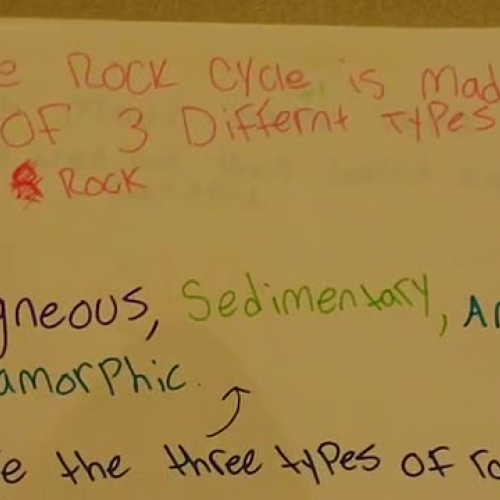 e ROCK CYcle is mad
OF 3 Differnt TYPES
ROCK
gneous, Sedimentary, An
amorphic.
e the three types of ro